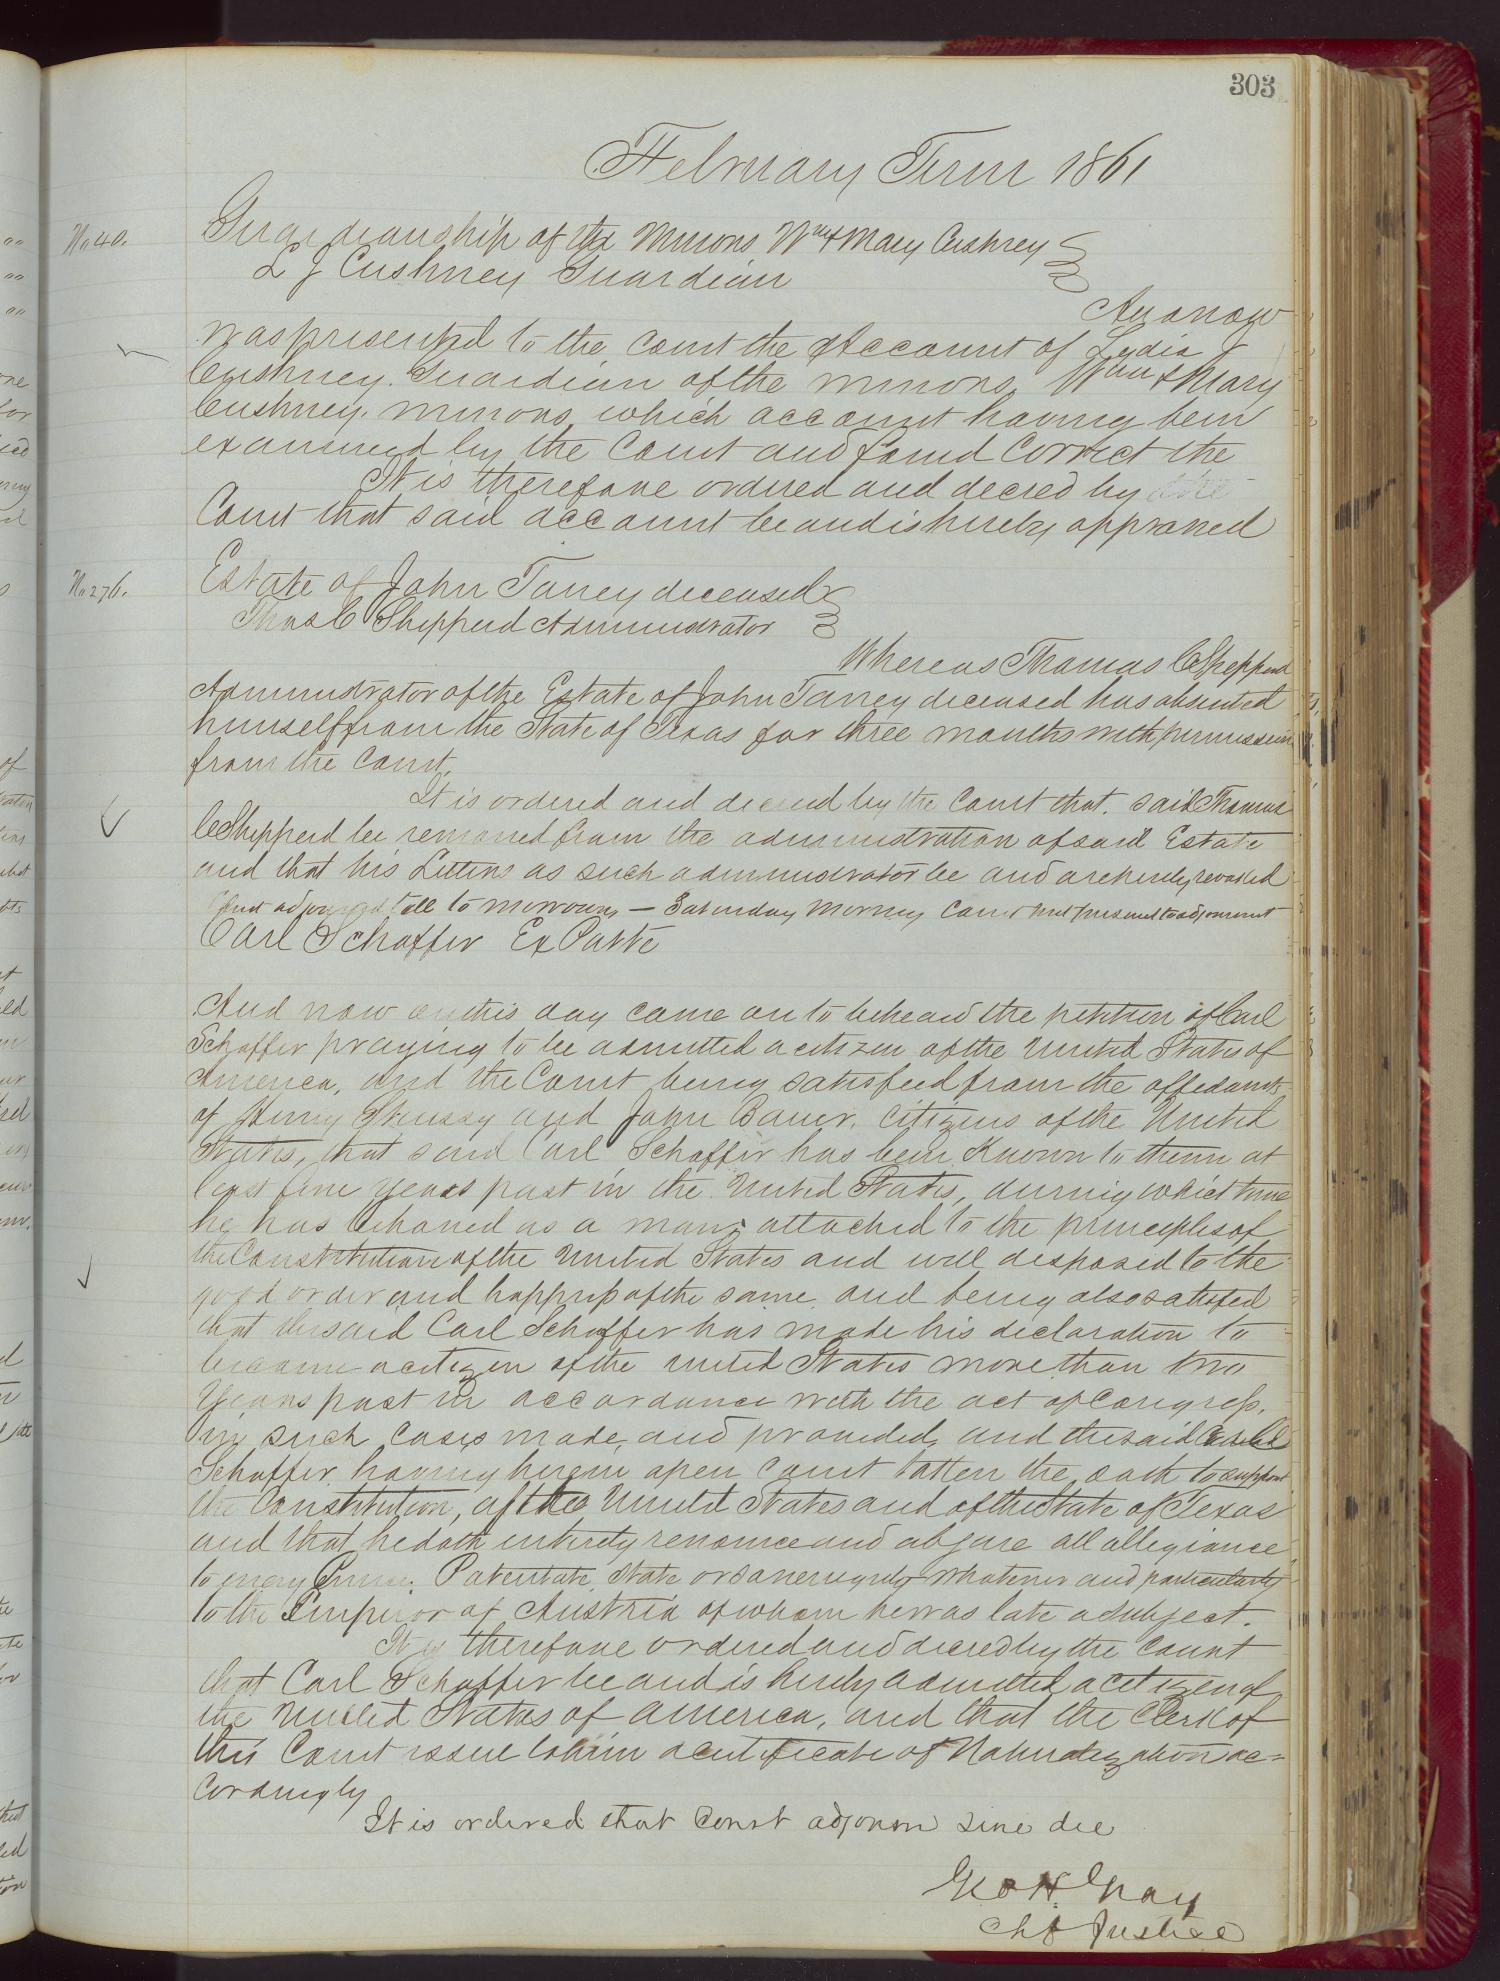 303
February Term 1861
No 40. Guardianship of the Minors Wm & Mary Cushney
L J Cushney Guardian
And now
was presented to the court the Account of Lydia J
Cushney. Guardian of the minors, Wm & Mary
Cushney. minors, which account having been
examined by the Court and found Correct the
It is therefore ordered and decred by the
Court that said account be and is hereby approved
No 276. Estate of John Taney deceased
Thos C Shepperd Administrator
Whereas Thomas C Shepperd
Administrator of the Estate of John Taney deceased has absented
himself from the State of Texas for three months with permission
from the Court,
It is ordered and decreed by the Court that. said Thomas
C Shepperd be removed from the administration of said Estate
and that his Letters as such administrator be and are hereby revoked
Court adjourned till to morrow — Saturday Morning Court met pursuant to adjournment
Carl Schaffer Ex Parte
And now on this day came on to be heard the petition of Carl
Schaffer praying to be admitted a citizen of the United States of
America, and the Court being satisfied from the affedavits
of Henry and John Bauer. Citizens of the United
States, that said Carl Schaffer has been Known to them at
least five years past in the United States, during which time
he has behaved as a man attached to the principles of
the Constitution of the United States and well disposed to the
good order and happiness of the same. and being also satisfied
that the said Carl Schaffer has made his declaration to
become a citizen of the United States more than two
Years past in accordance with the act of Congress.
in such cases made, and provided, and the said Carl
Schaffer having here in open Court taken the oath to support
the Constitution, of the United States and of the State of Texas
and that he doth entirely renounce and abjure all allegiance
to every Prince, Potentate, State or sovereignty whatever and particularly
to the Emperor of Austria of whom he was late a subject.
It is therefore ordered and decred by the Court
that Carl Schaffer be and is hereby admitted a citizen of
the United States of America, and that the Clerk of
this Court issue to him a certificate of Naturalization ac=
cordingly
It is ordered that Court adjourn sine die
Geo H. Gray
Chf Justice